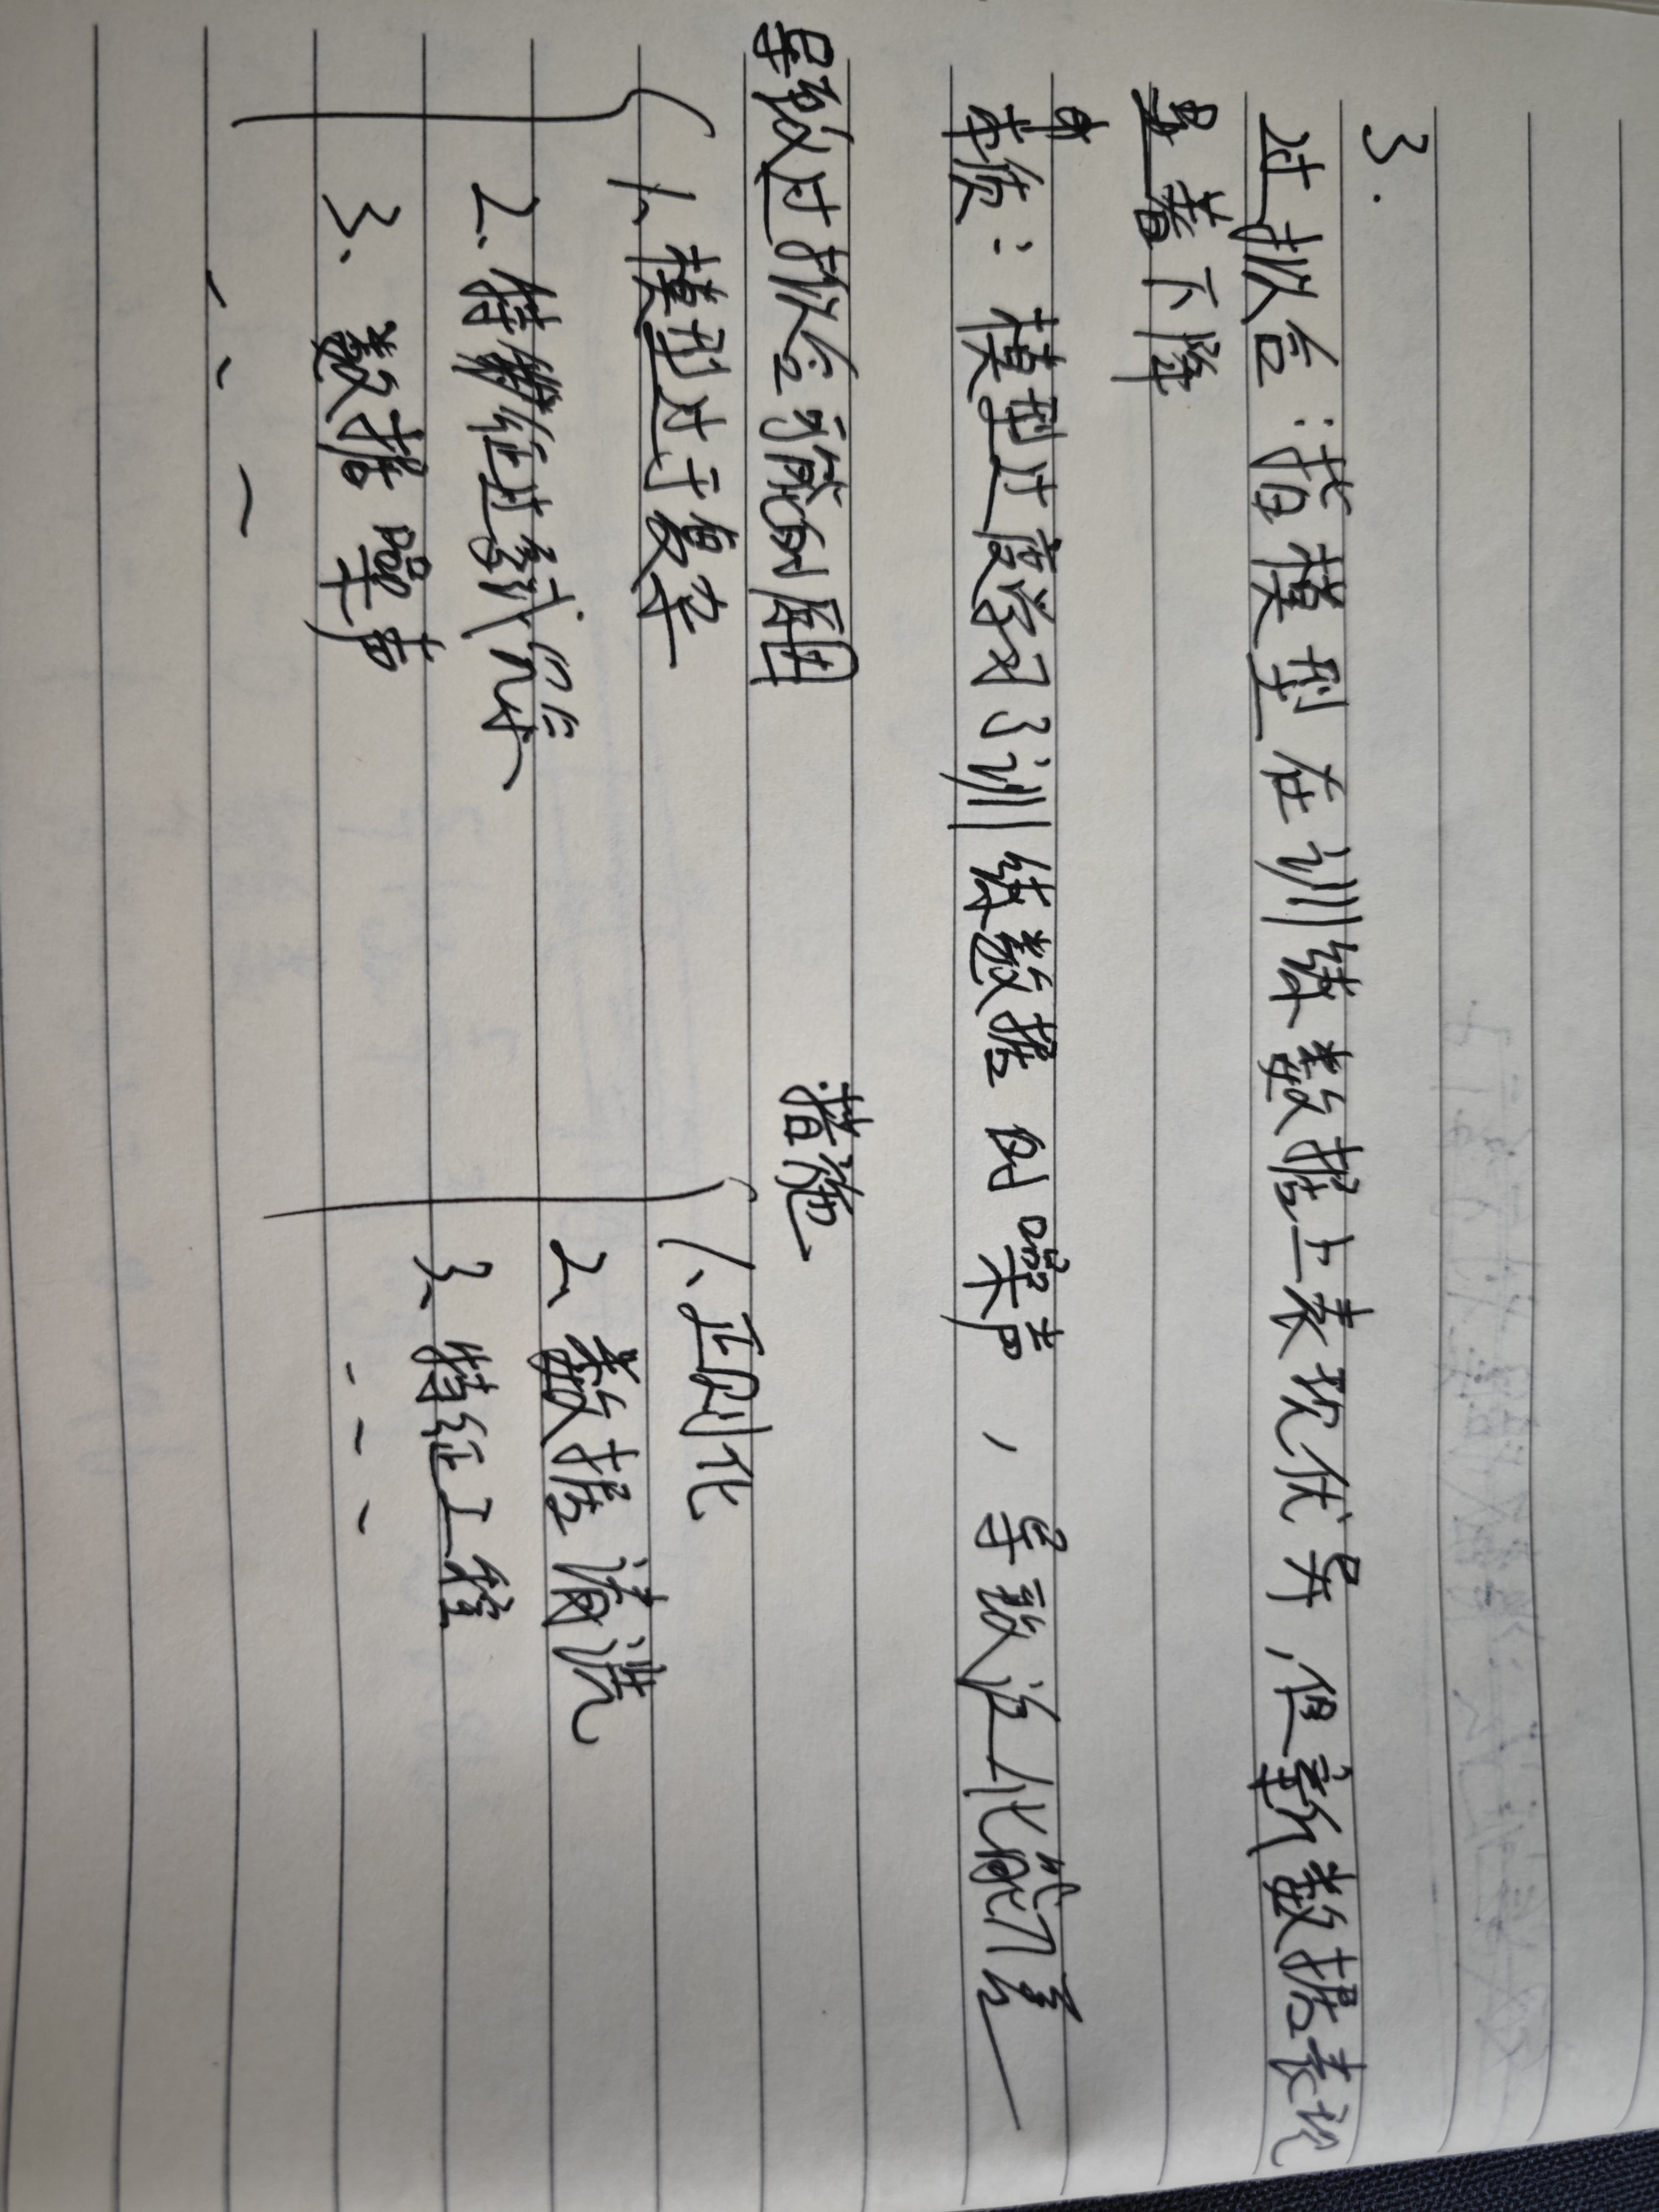 3.
过拟合：指模型在训练数据上表现优异，但新数据表现
显著下降
本质：模型过度学习了训练数据的噪声，导致泛化能力差
导致过拟合可能的原因
1、模型过于复杂
2、特征过多
3、数据噪声
、、、
措施
1、正则化
2、数据清洗
3、特征工程
、、、